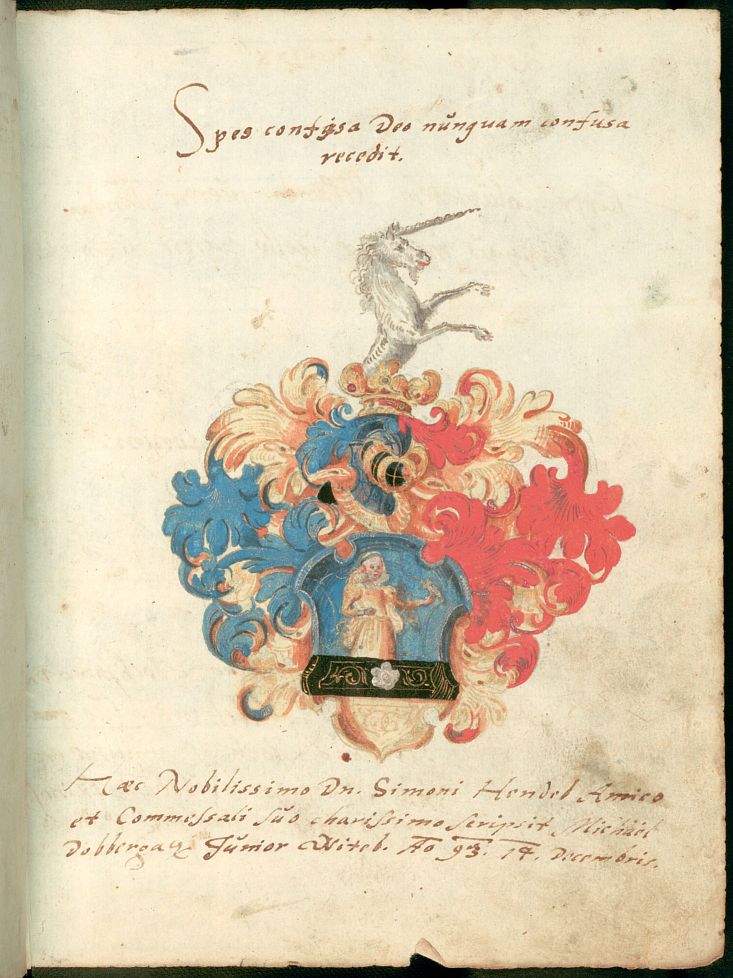 Spes confisa Deo nunquam confusa
recedit.
Haec Nobilissimo Dn. Simoni Hendel Amico
et Commessali suo charissimo scripsit Michäel
Junior Witeb. Ao 93. 14. Decembris.